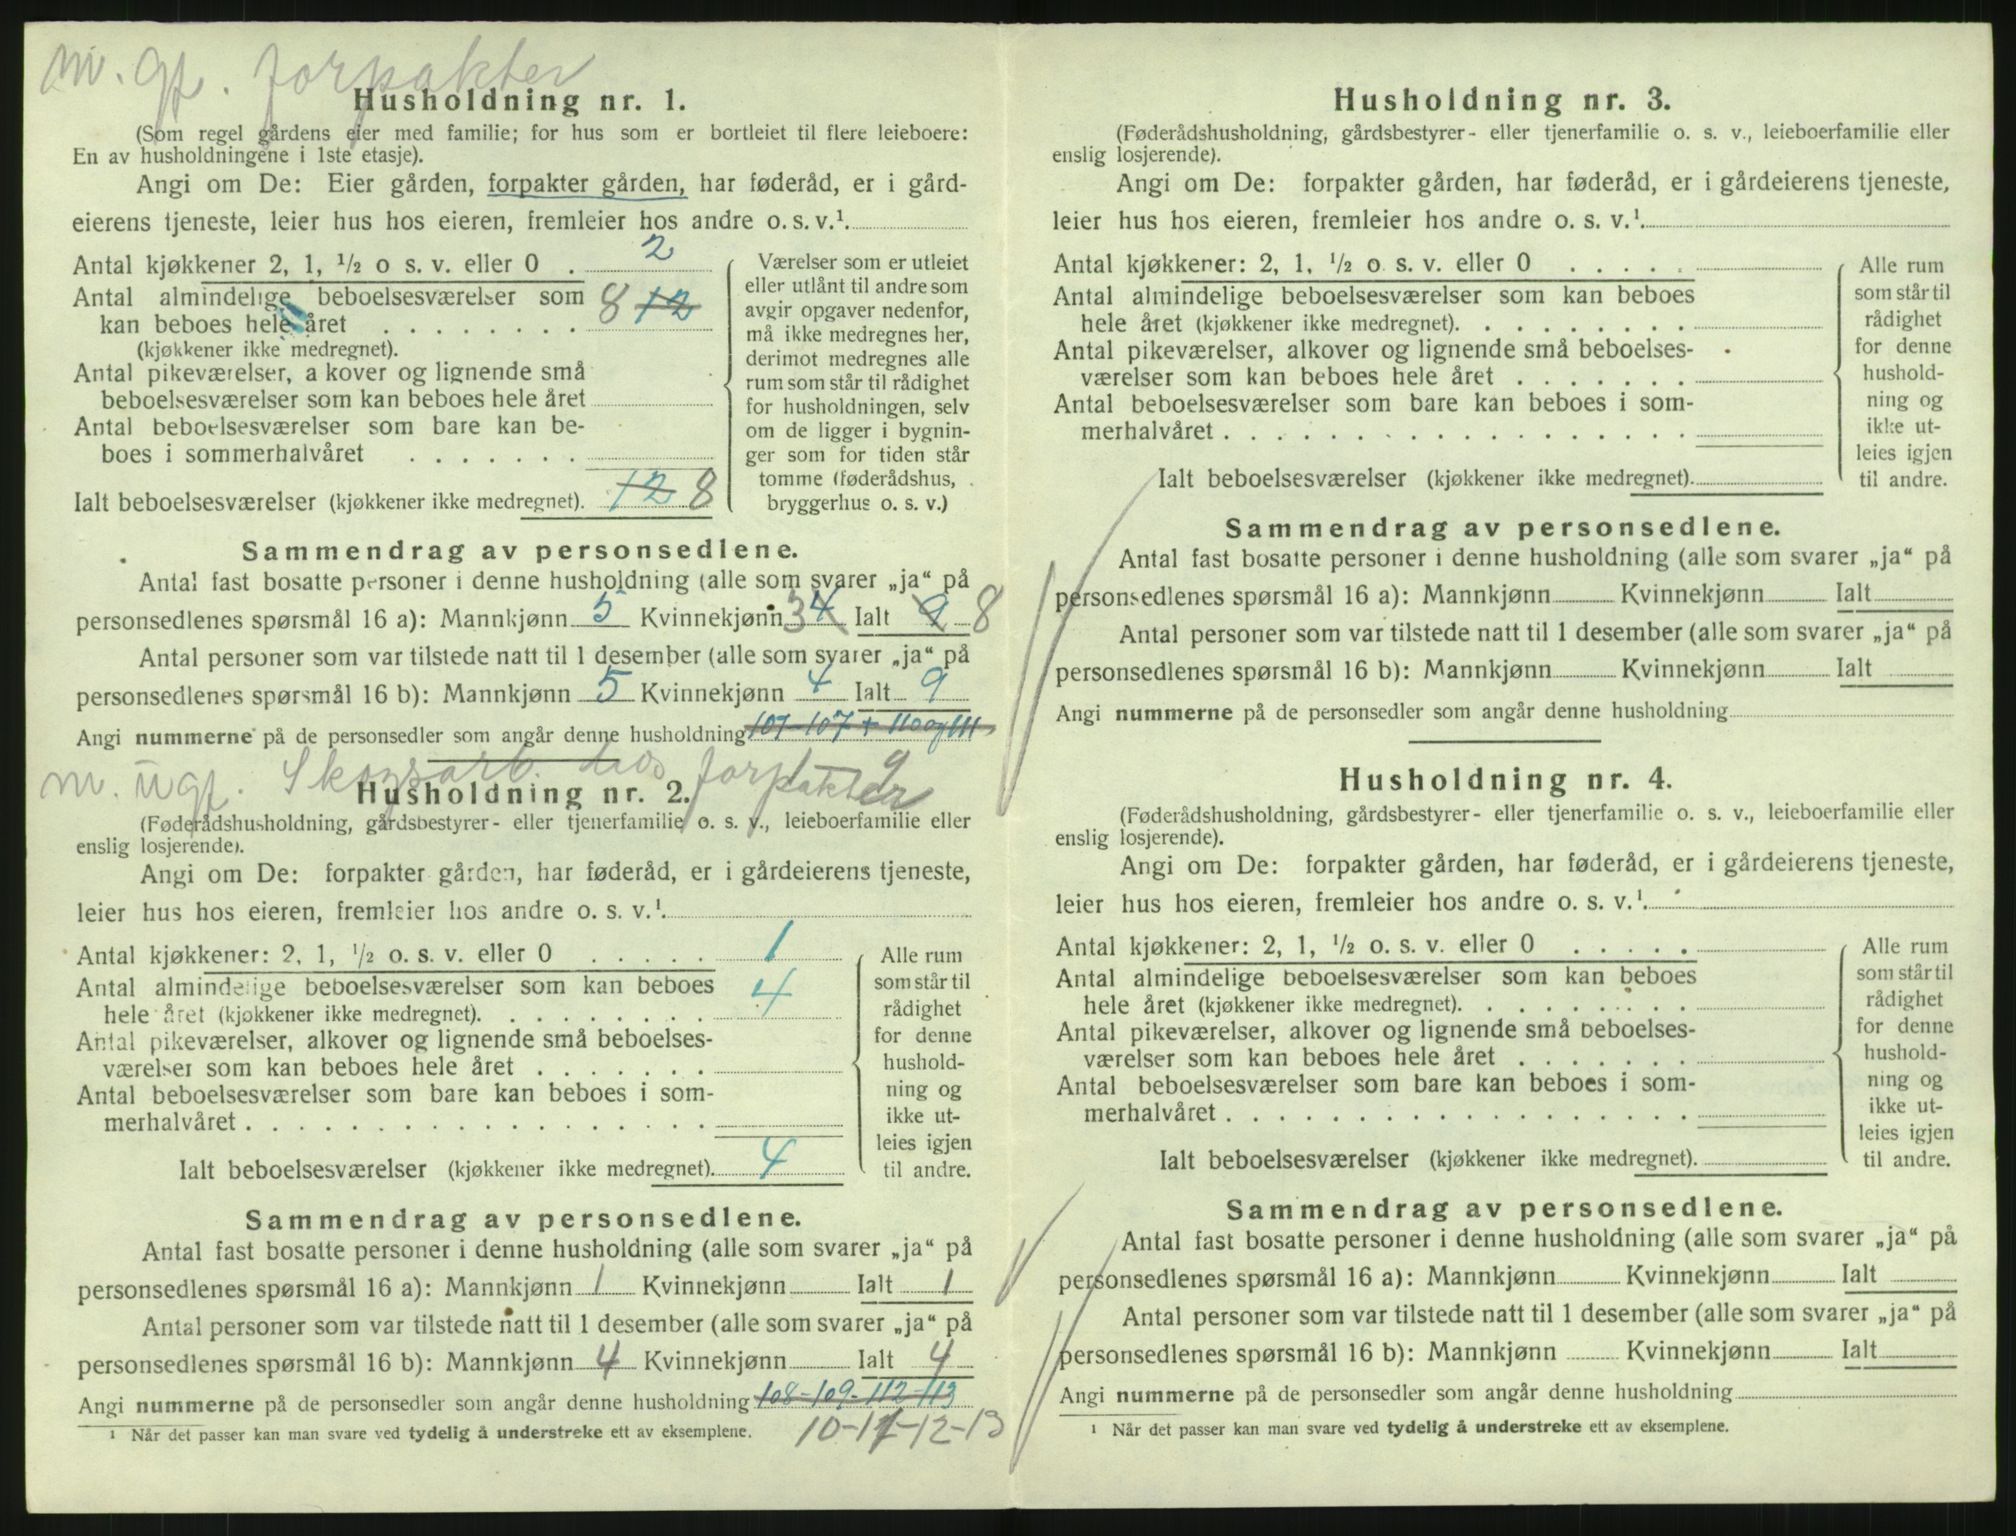 m. gf. forpakter
Husholdning nr. 1.
(Som regel gårdens eier med familie; for hus som er bortleiet til flere leieboere:
En av husholdningene i 1ste etasje).
Angi om De: Eier gården, forpakter gården, har føderåd, er i gård-
eierens tjeneste, leier hus hos eieren, fremleier hos andre o. s. v.¹
Antal kjøkkener 2, 1, ½ o s. v. eller 0 . 2
Antal almindelige beboelsesværelser som
kan beboes hele året . . . . . . . . 8 12
(kjøkkener ikke medregnet).
Antal pikeværelser, a kover og lignende små
beboelsesværelser som kan beboes hele året
Antal beboelsesværelser som bare kan be-
boes i sommerhalvåret . . . . . . .
Ialt beboelsesværelser (kjøkkener ikke medregnet). 12 8
Værelser som er utleiet
eller utlånt til andre som
avgir opgaver nedenfor,
må ikke medregnes her,
derimot medregnes alle
rum som står til rådighet
for husholdningen, selv
om de ligger i bygnin-
ger som for tiden står
tomme (føderådshus,
bryggerhus o. s. v.)
Sammendrag av personsedlene.
Antal fast bosatte personer i denne husholdning (alle som svarer „ja“ på
personsedlenes spørsmål 16 a): Mannkjønn 5 Kvinnekjønn 3 4 Ialt 9 8
Antal personer som var tilstede natt til 1 desember (alle som svarer „ja“ på
personsedlenes spørsmål 16 b): Mannkjønn 5 Kvinnekjønn 4 Ialt 9
Angi nummerne på de personsedler som angår denne husholdning 101-107 + 110 og 111
1 - 9
m. ugf. Skogsarb. hos forpakter
Husholdning nr. 2.
(Føderådshusholdning, gårdsbestyrer- eller tjenerfamilie o. s. v., leieboerfamilie eller
enslig losjerende).
Angi om De: forpakter gården, har føderåd, er i gårdeierens tjeneste,
leier hus hos eieren, fremleier hos andre o. s. v.¹
Antal kjøkkener: 2, 1, ½ o. s. v. eller 0 . . . . . 1
Antal almindelige beboelsesværelser som kan beboes
hele året (kjøkkener ikke medregnet). . . . . . . . . 4
Antal pikeværelser, alkover og lignende små beboelses-
værelser som kan beboes hele året . . . . . . .
Antal beboelsesværelser som bare kan beboes i som-
merhalvåret . . . . . . . . . . . . . . . . . .
Ialt beboelsesværelser (kjøkkener ikke medregnet). 4
Alle rum
som står til
rådighet
for denne
hushold-
ning og
ikke ut-
leies igjen
til andre.
Sammendrag av personsedlene.
Antal fast bosatte personer i denne husholdning (alle som svarer „ja“ på
personsedlenes spørsmål 16 a): Mannkjønn 1 Kvinnekjønn Ialt 1
Antal personer som var tilstede natt til 1 desember (alle som svarer „ja“ på
personsedlenes spørsmål 16 b): Mannkjønn 4 Kvinnekjønn Ialt 4
Angi nummerne på de personsedler som angår denne husholdning 108-109-112-113
10-11-12-13
¹ Når det passer kan man svare ved tydelig å understreke ett av eksemplene.
Husholdning nr. 3.
(Føderådshusholdning, gårdsbestyrer- eller tjenerfamilie o. s. v., leieboerfamilie eller
enslig losjerende).
Angi om De: forpakter gården, har føderåd, er i gårdeierens tjeneste,
leier hus hos eieren, fremleier hos andre o. s. v.¹
Antal kjøkkener: 2, 1, ½ o. s. v. eller 0 . . . . .
Antal almindelige beboelsesværelser som kan beboes
hele året (kjøkkener ikke medregnet). . . . . . . . .
Antal pikeværelser, alkover og lignende små beboelses-
værelser som kan beboes hele året . . . . . . .
Antal beboelsesværelser som bare kan beboes i som-
merhalvåret . . . . . . . . . . . . . . . . . .
Ialt beboelsesværelser (kjøkkener ikke medregnet).
Alle rum
som står til
rådighet
for denne
hushold-
ning og
ikke ut-
leies igjen
til andre.
Sammendrag av personsedlene.
Antal fast bosatte personer i denne husholdning (alle som svarer „ja“ på
personsedlenes spørsmål 16 a): Mannkjønn Kvinnekjønn Ialt
Antal personer som var tilstede natt til 1 desember (alle som svarer „ja“ på
personsedlenes spørsmål 16 b): Mannkjønn Kvinnekjønn Ialt
Angi nummerne på de personsedler som angår denne husholdning
Husholdning nr. 4.
(Føderådshusholdning, gårdsbestyrer- eller tjenerfamilie o. s. v., leieboerfamilie eller
enslig losjerende).
Angi om De: forpakter gården, har føderåd, er i gårdeierens tjeneste,
leier hus hos eieren, fremleier hos andre o. s. v.¹
Antal kjøkkener: 2, 1, ½ o. s. v. eller 0 . . . . .
Antal almindelige beboelsesværelser som kan beboes
hele året (kjøkkener ikke medregnet). . . . . . . . .
Antal pikeværelser, alkover og lignende små beboelses-
værelser som kan beboes hele året . . . . . . .
Antal beboelsesværelser som bare kan beboes i som-
merhalvåret . . . . . . . . . . . . . . . . . .
Ialt beboelsesværelser (kjøkkener ikke medregnet).
Alle rum
som står til
rådighet
for denne
hushold-
ning og
ikke ut-
leies igjen
til andre.
Sammendrag av personsedlene.
Antal fast bosatte personer i denne husholdning (alle som svarer „ja“ på
personsedlenes spørsmål 16 a): Mannkjønn Kvinnekjønn Ialt
Antal personer som var tilstede natt til 1 desember (alle som svarer „ja“ på
personsedlenes spørsmål 16 b): Mannkjønn Kvinnekjønn Ialt
Angi nummerne på de personsedler som angår denne husholdning
¹ Når det passer kan man svare ved tydelig å understreke ett av eksemplene.